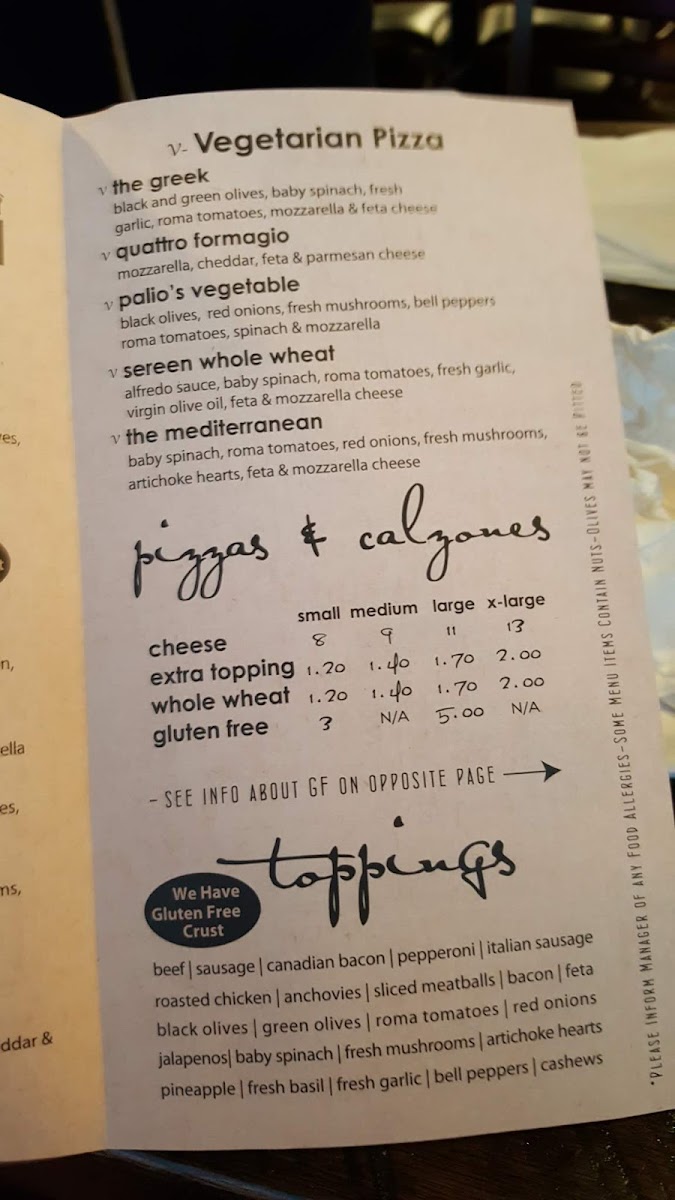 v- Vegetarian Pizza
v the greek
black and green olives, baby spinach, fresh
garlic, roma tomatoes, mozzarella & feta cheese
v quattro formagio
mozzarella, cheddar, feta & parmesan cheese
v palio's vegetable
black olives, red onions, fresh mushrooms, bell peppers
roma tomatoes, spinach & mozzarella
v sereen whole wheat
alfredo sauce, baby spinach, roma tomatoes, fresh garlic,
virgin olive oil, feta & mozzarella cheese
v the mediterranean
baby spinach, roma tomatoes, red onions, fresh mushrooms,
artichoke hearts, feta & mozzarella cheese
pizzas & calzones
small medium large x-large
cheese 8 9 11 13
extra topping 1.20 1.40 1.70 2.00
whole wheat 1.20 1.40 1.70 2.00
gluten free 3 N/A 5.00 N/A
- SEE INFO ABOUT GF ON OPPOSITE PAGE
toppings
We Have
Gluten Free
Crust
beef | sausage | canadian bacon | pepperoni | italian sausage
roasted chicken | anchovies | sliced meatballs | bacon | feta
black olives | green olives | roma tomatoes | red onions
jalapenos| baby spinach | fresh mushrooms | artichoke hearts
pineapple | fresh basil | fresh garlic | bell peppers | cashews
*PLEASE INFORM MANAGER OF ANY FOOD ALLERGIES-SOME MENU ITEMS CONTAIN NUTS-OLIVES MAY NOT BE PITTED
ddar &